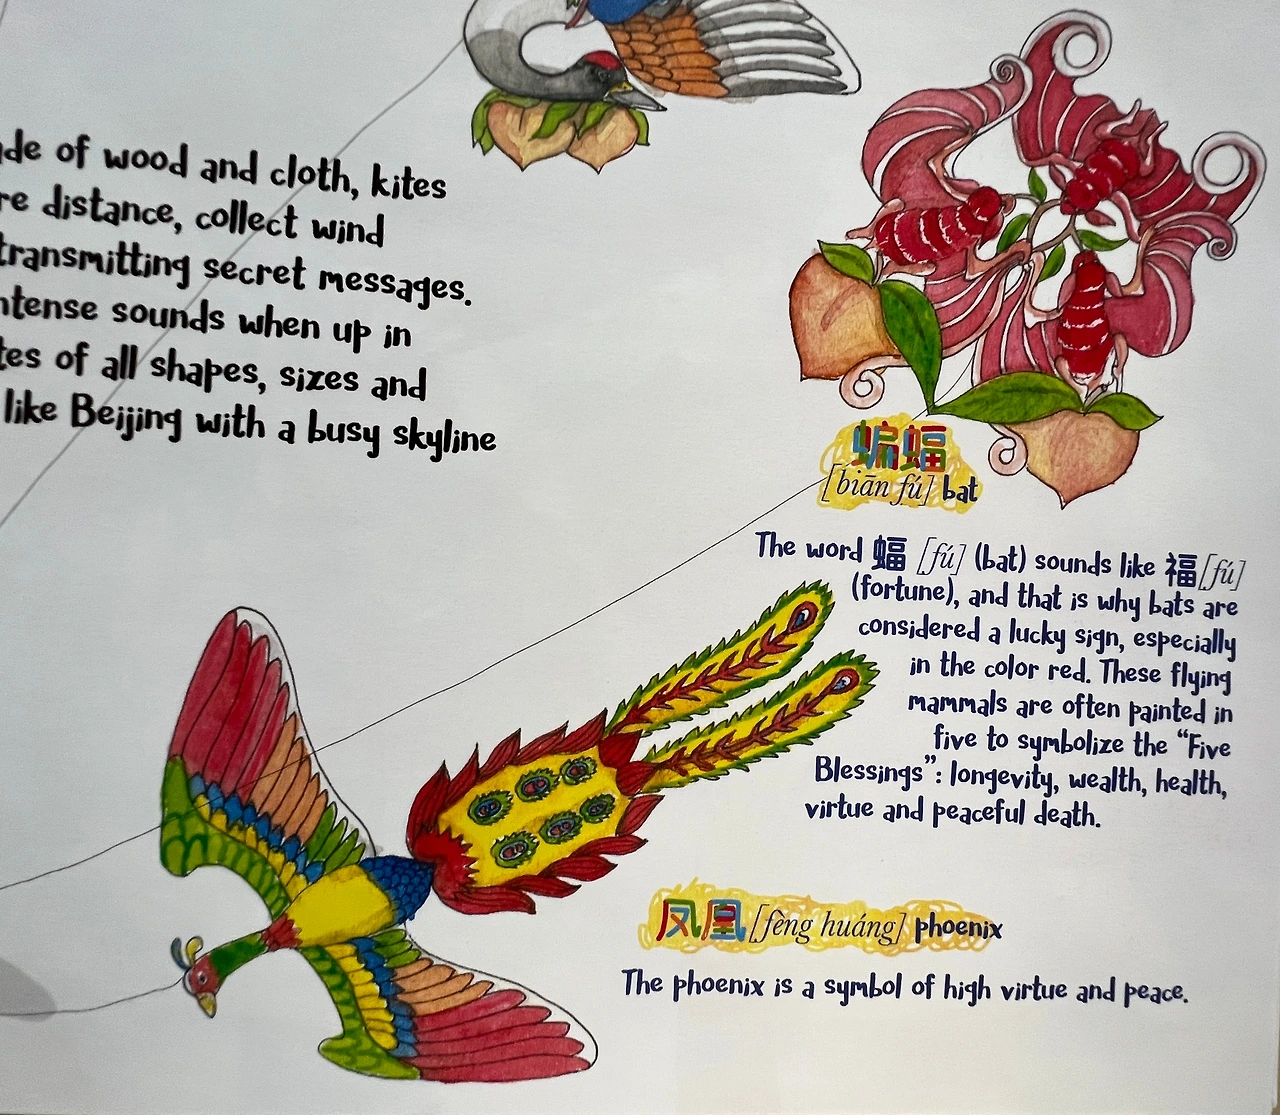 ade of wood and cloth, kites
re distance, collect wind
transmitting secret messages.
ntense sounds when up in
tes of all shapes, sizes and
like Beijing with a busy skyline
蝙蝠
[biān fú] bat
The word 蝠 [fú] (bat) sounds like 福 [fú]
(fortune), and that is why bats are
considered a lucky sign, especially
in the color red. These flying
mammals are often painted in
five to symbolize the “Five
Blessings”: longevity, wealth, health,
virtue and peaceful death.
凤凰 [fèng huáng] phoenix
The phoenix is a symbol of high virtue and peace.